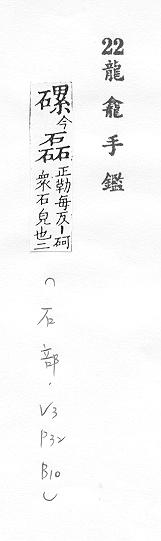 22龍龕手鑑
磥今磊正勒每反丨砢衆石皃也二
(石部.V3 P32 B10)